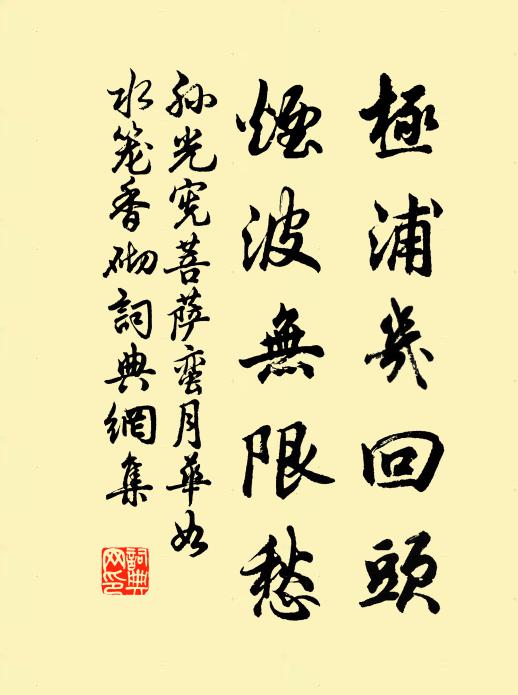 極浦幾回頭
煙波無限愁
孫光憲菩薩蠻月華如
水籠香砌詞典網集
詞典網印